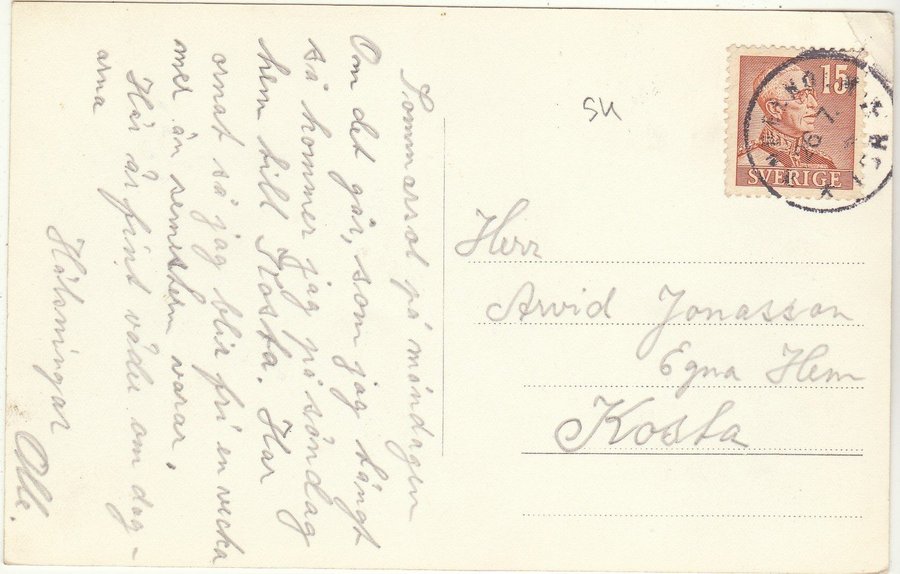 Sommarrol på måndagen
Om det går, som jag tängt
så kommer jag på söndag
hem till Kosta. Har
ornat så jag blir fri en vecka
mer än semistern varar.
Här är fint väder om dag-
arna
Hälsningar
Olle.
SU
15
SVERIGE
26 7
Herr
Arvid Jonasson
Egna Hem
Kosta